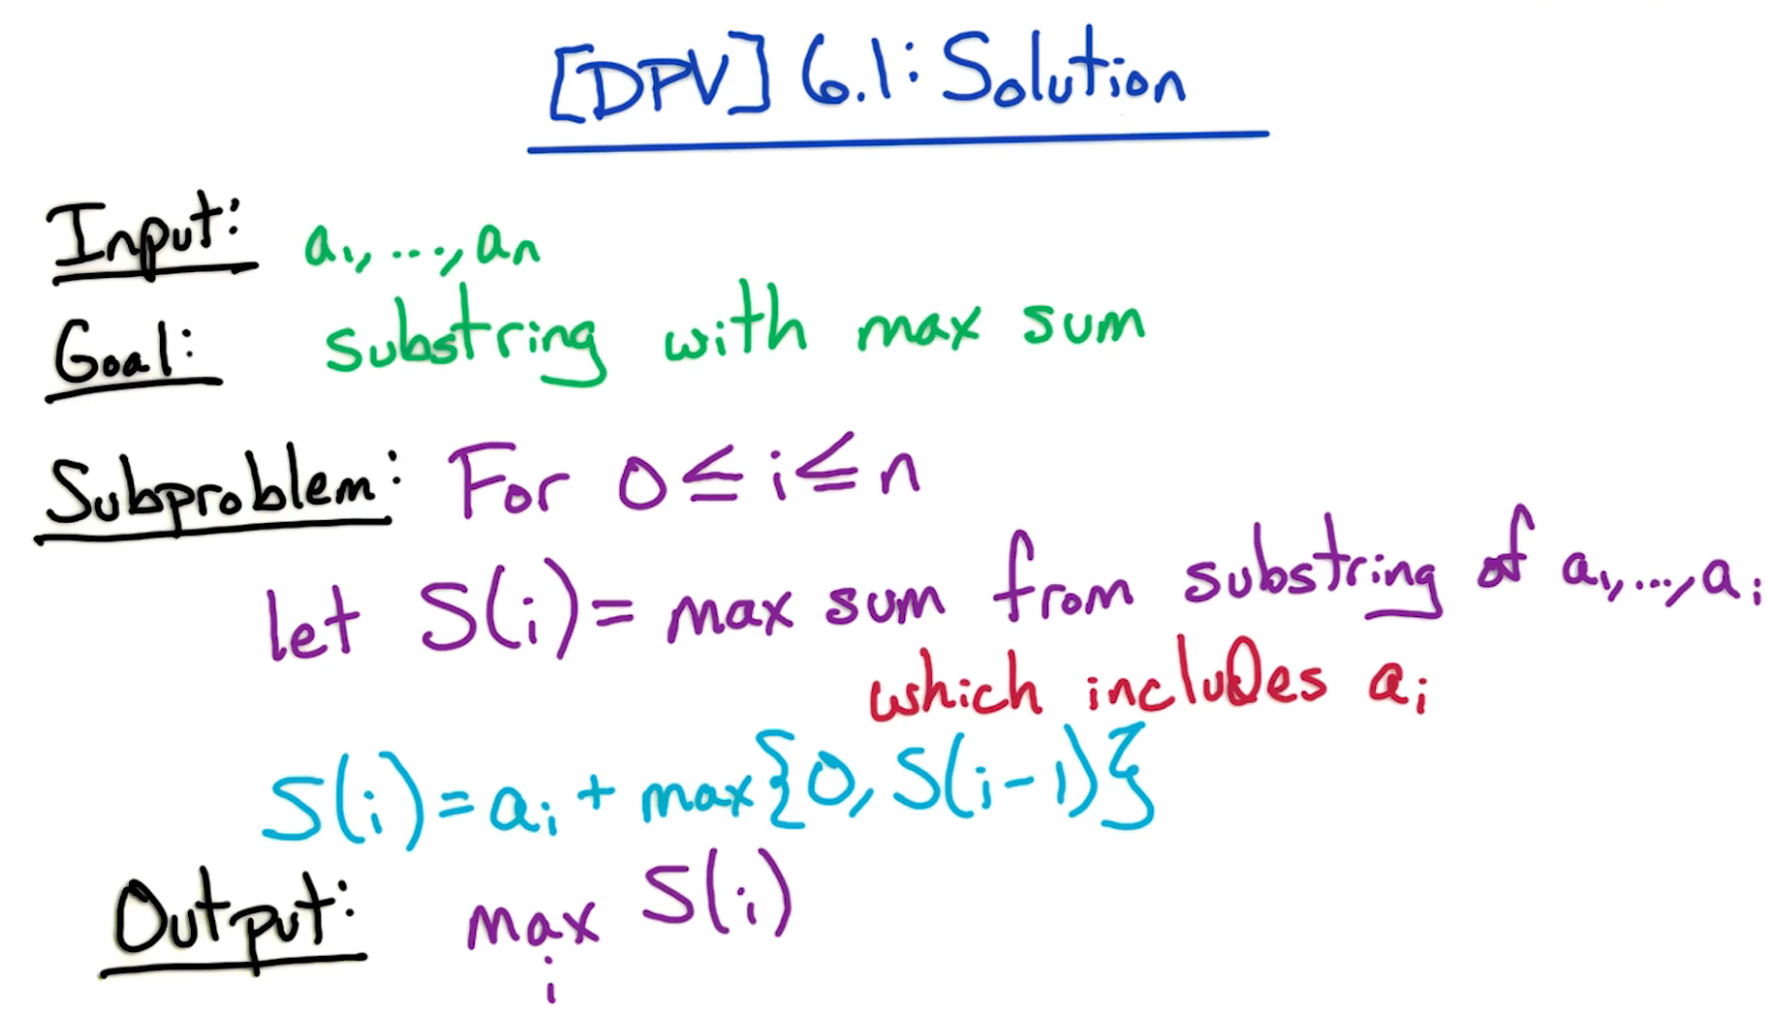 [DPV] 6.1: Solution
Input: a₁, ..., aₙ
Goal: substring with max sum
Subproblem: For 0 ≤ i ≤ n
let S(i) = max sum from substring of a₁, ..., aᵢ
which includes aᵢ
S(i) = aᵢ + max{0, S(i-1)}
Output: max S(i)
i